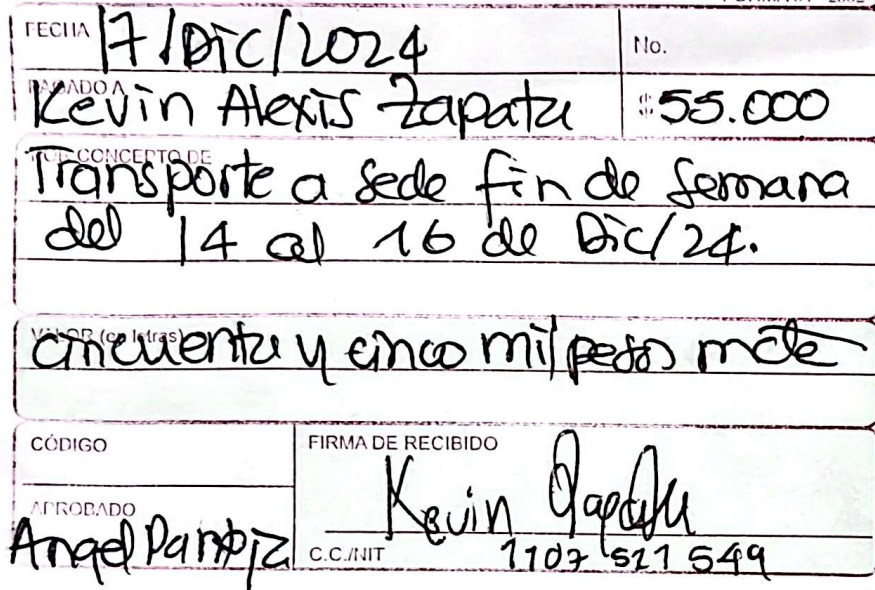 FECHA 17/Dic/2024 No.
PAGADO A
Kevin Alexis Zapata $ 55.000
POR CONCEPTO DE
Transporte a sede fin de semana
del 14 al 16 de Dic/24.
VALOR (en letras)
cincuenta y cinco mil pesos mcte
CÓDIGO FIRMA DE RECIBIDO
Kevin Zapata
APROBADO
Angel Pantoja C.C./NIT 1107 521 549